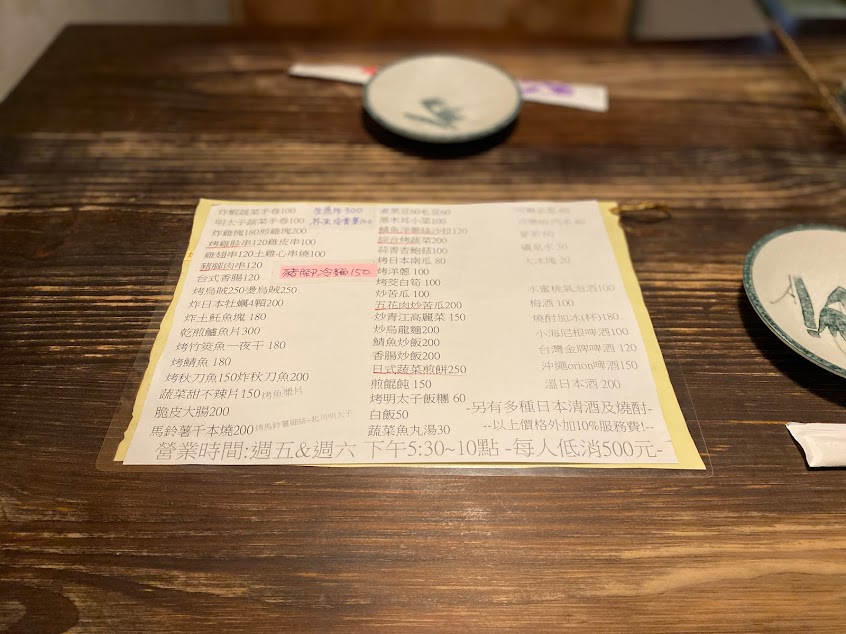 炸蝦蔬菜手卷100
明太子蔬菜手卷100
炸雞塊180煎雞塊200
烤雞腿串120雞皮串100
雞翅串120土雞心串燒100
豬腳肉串120
台式香腸120
烤烏賊250
炸日本牡蠣4顆200
炸土魠魚塊 180
乾煎鱸魚片300
烤竹筴魚一夜干 180
烤鯖魚 180
烤秋刀魚150炸秋刀魚200
蔬菜甜不辣片150
脆皮大腸200
馬鈴薯千本燒200
豬腳冷麵150
黑木耳小菜100
綜合烤蔬菜200
蒜香杏鮑菇100
烤日本南瓜 80
烤洋蔥 100
烤茭白筍 100
炒苦瓜 100
五花肉炒苦瓜200
炒青江高麗菜 150
炒烏龍麵200
鯖魚炒飯200
香腸炒飯200
日式蔬菜煎餅250
煎餛飩 150
烤明太子飯糰 60
白飯50
蔬菜魚丸湯30
礦泉水 30
水蜜桃氣泡酒100
梅酒 100
燒酎加冰(杯)180
小海尼根啤酒100
台灣金牌啤酒 120
沖繩orion啤酒150
溫日本酒 200
-另有多種日本清酒及燒酎-
--以上價格外加10%服務費!--
營業時間:週五&週六 下午5:30~10點 -每人低消500元-